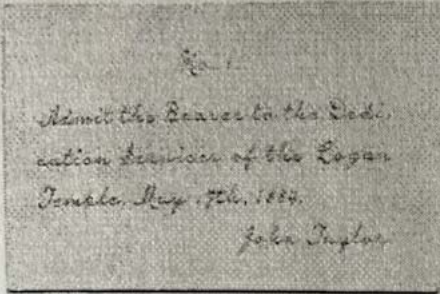 No. 1.
Admit the Bearer to the Dedi-
cation Services of the Logan
Temple, May 17th, 1884.
John Taylor